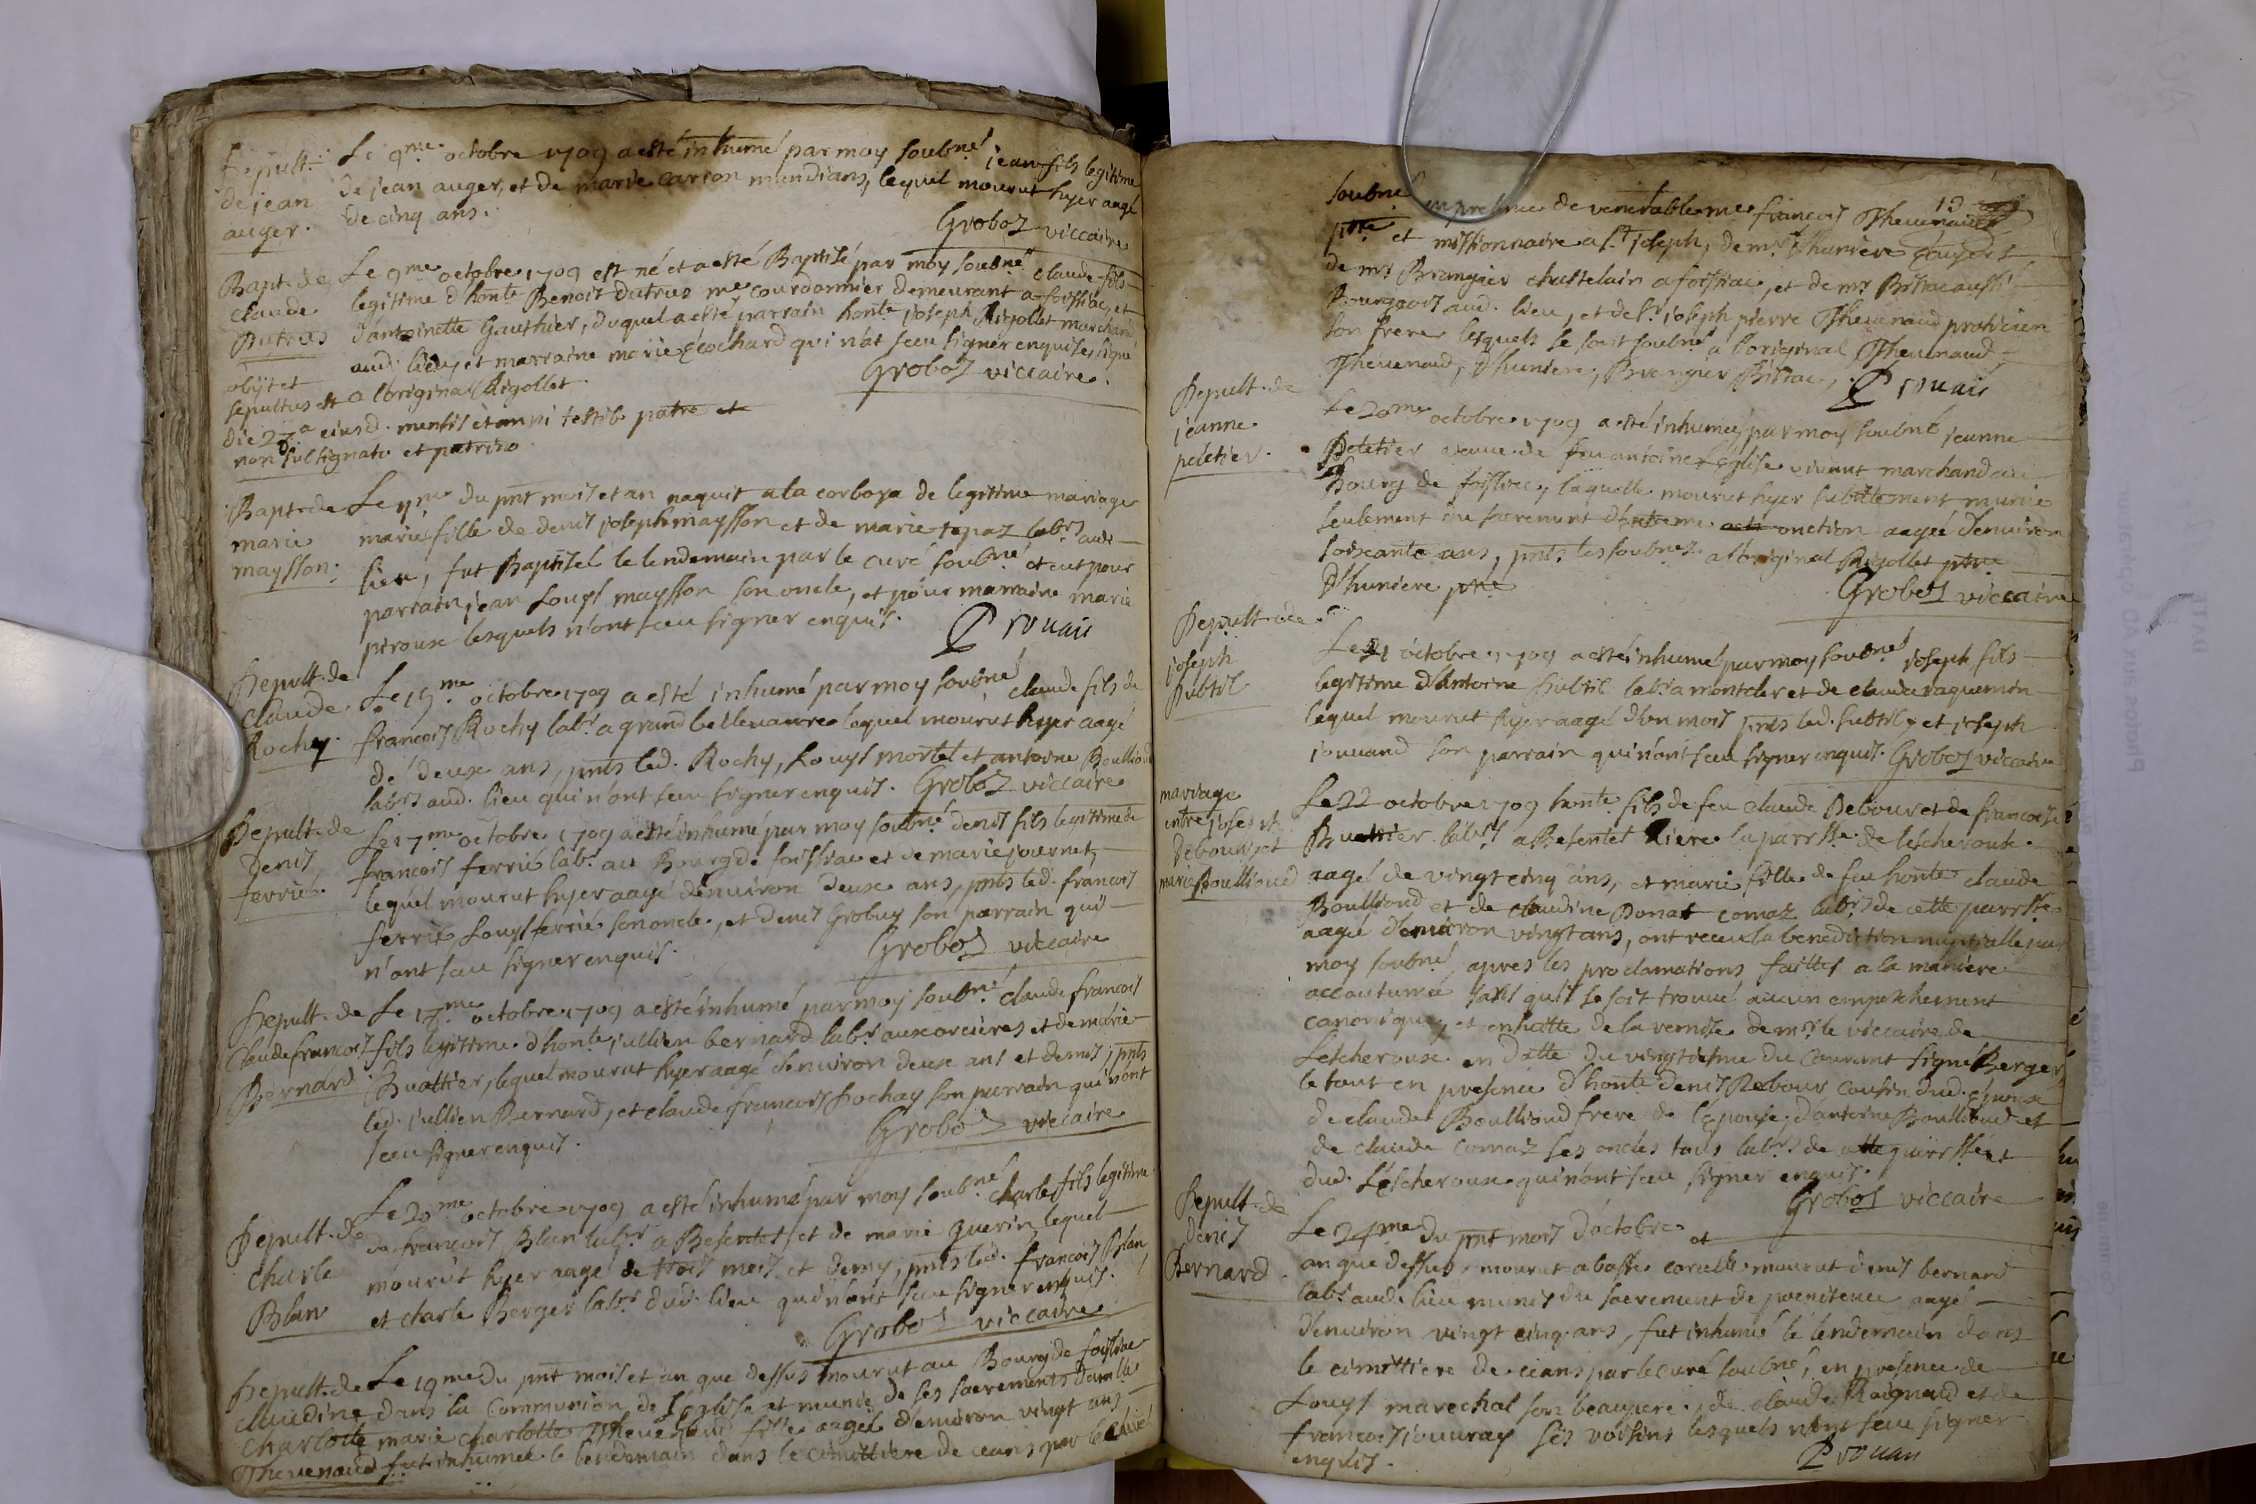 Sepult.
de jean
auger.
Le 9me octobre 1709 a esté inhumé par moy soubné jean fils legitime
de jean auger, et de marie carron mendians, lequel mourut hyer aagé
de cinq ans.
Groboz viccaire
Bapt. de
claude
Dutrus
Le 9me octobre 1709 est né et a esté Baptisé par moy soubné claude fils
legitime d'honte Benoit dutrus me courdonnier demeurant a foissiac, et
d'antoinette Gauthier, duquel a esté parrain honte joseph Rigollet marchand
aud. lieu, et marraine marie cochard qui n'at sceu signer enquise, signé
a l'original Rigollet.
Groboz viccaire.
obijt et
sepultus est
die 27a eiusd. mensis et anni testib. patre et
non subsignatu et patrino
Bapt. de
marie
maysson.
Le 11me du pnt mois et an naquit a la corboya de legitime mariage
marie fille de denis joseph maysson et de marie topaz labrs aud.
lieu, fut Baptisée le lendemain par le curé soubné et eut pour
parrain jean Louys maysson son oncle, et pour marraine marie
piroux lesquels n'ont sceu signer enquis.
Prouais
Sepult. de
claude
Rochy.
Le 15me octobre 1709 a esté inhumé par moy soubné claude fils de
francois Rochy labr a grand bellevavre lequel mourut hyer aagé
de deux ans, pnts led. Rochy, Louys mortel et antoine Boullioud
labrs aud. lieu qui n'ont sceu signer enquis. Groboz viccaire
Sepult. de
denis
ferrié.
Le 17me octobre 1709 a esté inhumé par moy soubné denis fils legitime de
francois ferrié labr au Bourg de foissiac et de marie journet,
lequel mourut hyer aagé d'environ deux ans, pnts led. francois
ferrié Louys ferrié son oncle, et denis Grobuy son parrain qui
n'ont sceu signer enquis.
Groboz viccaire
Sepult. de
Claude francois
Bernard
Le 17me octobre 1709 a esté inhumé par moy soubné claude francois
fils legitime d'honte jullien bernard labr aux orcières et de marie
Buattier, lequel mourut hyer aagé d'environ deux ans et demis, pnts
led. jullien Bernard, et claude francois sochay son parrain qui n'ont
sceu signer enquis.
Groboz viccaire
Sepult. de
charle
Blan
Le 20me octobre 1709 a esté inhumé par moy soubné charle fils legitime
de francois Blan labr a Besentet et de marie querin, lequel
mourut hyer aagé de trois mois et demy, pnts led. francois Blan,
et charle Berger labr dud. lieu qui n'ont sceu signer enquis.
Groboz viccaire
Sepult. de
claudine
charlotte
Thevenaud
Le 19me du pnt mois et an que dessus mourut au Bourg de foissiac
dans la Communion de l'Eglise et munie de ses sacrements damlle
marie charlotte Thevenaud fille aagée d'environ vingt ans
fut inhumée le lendemain dans le cimittiere de ceans par le curé
soubné en presence de venerable me francois Thevenaud
ptre et missionnaire a st joseph, de mre d'huniere
de mr Brangier chastelain a foissiac, et de mr Bissac aussi
Bourgeois aud. lieu, et de sr joseph pierre Thevenaud praticien
son frere lesquels se sont soubné a l'original Thevenaud,
Thevenaud, D'huniere, Brangier Bissac,
Prouais
Sepult. de
jeanne
peletier.
Le 20me octobre 1709 a esté inhumée par moy soubné jeanne
Peletier veuve de feu antoine Léglise vivant marchand au
Bourg de foissiac, laquelle mourut hyer subitement munie
seulement du sacrement d'extreme onction aagée d'environ
soixante ans, pnts les soubnez a l'original Rigollet ptre
D'huniere ptre
Groboz viccaire
Sepult. de
joseph
subtil
Le 21 octobre 1709 a esté inhumé par moy soubné joseph fils
legitime d'antoine subtil labr a montcler et de claudaz jaquemin
lequel mourut hyer aagé d'un mois pnts led. subtil, et joseph
jouvand son parrain qui n'ont sceu signer enquis. Groboz viccaire
mariage
entre joseph
debour et
marie Boullioud
Le 22 octobre 1709 honte fils de feu claude Debour et de francoise
Buattier labrs a Besentet Riere la parrsse de lescheroux
aagé de vingt cinq ans, et marie fille de feu honte claude
Boulliond et de claudine Donat comaz labrs de cette parrsse
aagée d'environ vingt ans, ont receu la benediction nuptialle par
moy soubné, apres les proclamations faittes a la maniere
accoutumée sans qu'il se soit trouvé aucun empeschement
canonique, et en suitte de la remise de mr le viccaire de
Lescheroux en datte du vingtiesme du courant signé Berger,
le tout en presence d'honte denis Rebour cousin dud. epoux
de claude Boulliond frere de l'epouse, d'antoine Boulliond et
de claude comaz ses oncles tous labrs de cette parrsse et
dud. Lescheroux qui n'ont sceu signer enquis.
Groboz viccaire
Sepult. de
denis
Bernard
Le 24me du pnt mois d'octobre et
an que dessus, mourut a basse corcelle mourut denis bernard
labr aud. lieu munit du sacrement de penitence aagé
d'environ vingt cinq ans, fut inhumé le lendemain dans
le cimittiere de ceans par le curé soubné, en presence de
Louys marechal son beaupere, de claude Raignaud et de
francois jouvray ses voisins lesquels n'ont sceu signer
enquis.
Prouais